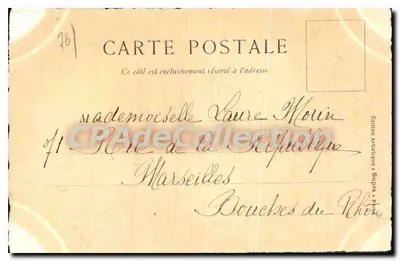 76)
CARTE POSTALE
Ce côté est exclusivement réservé à l'adresse
Mademoiselle Laure Morin
71 Rue de la République
Marseilles
Bouches du Rhône
CPADeCollection
Edition Artistique « Supra »